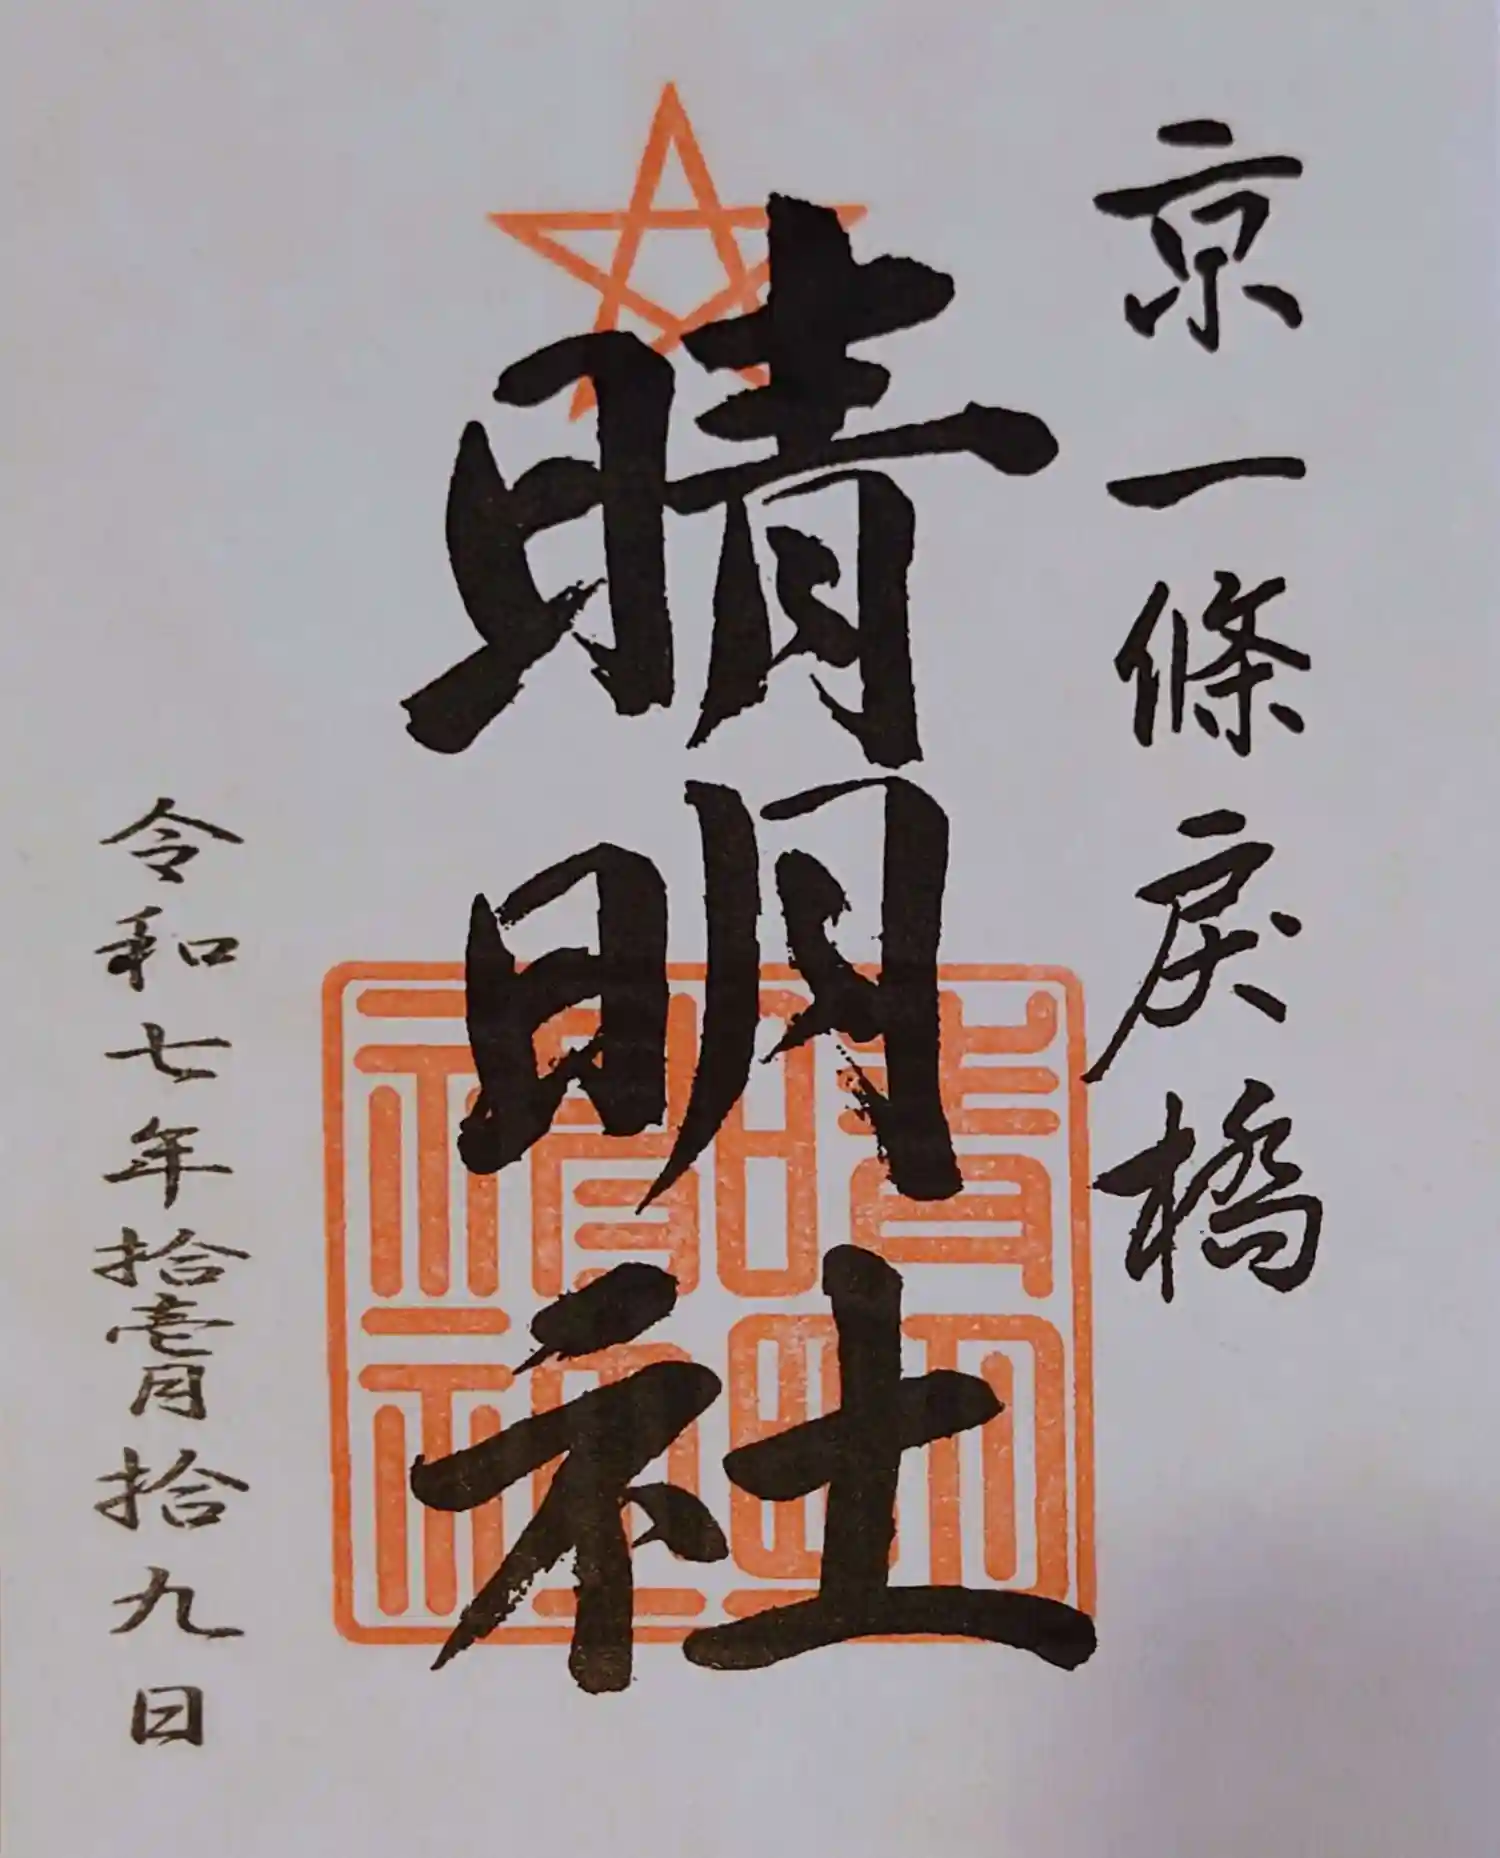 京一條戻橋
晴明社
令和七年拾壱月拾九日